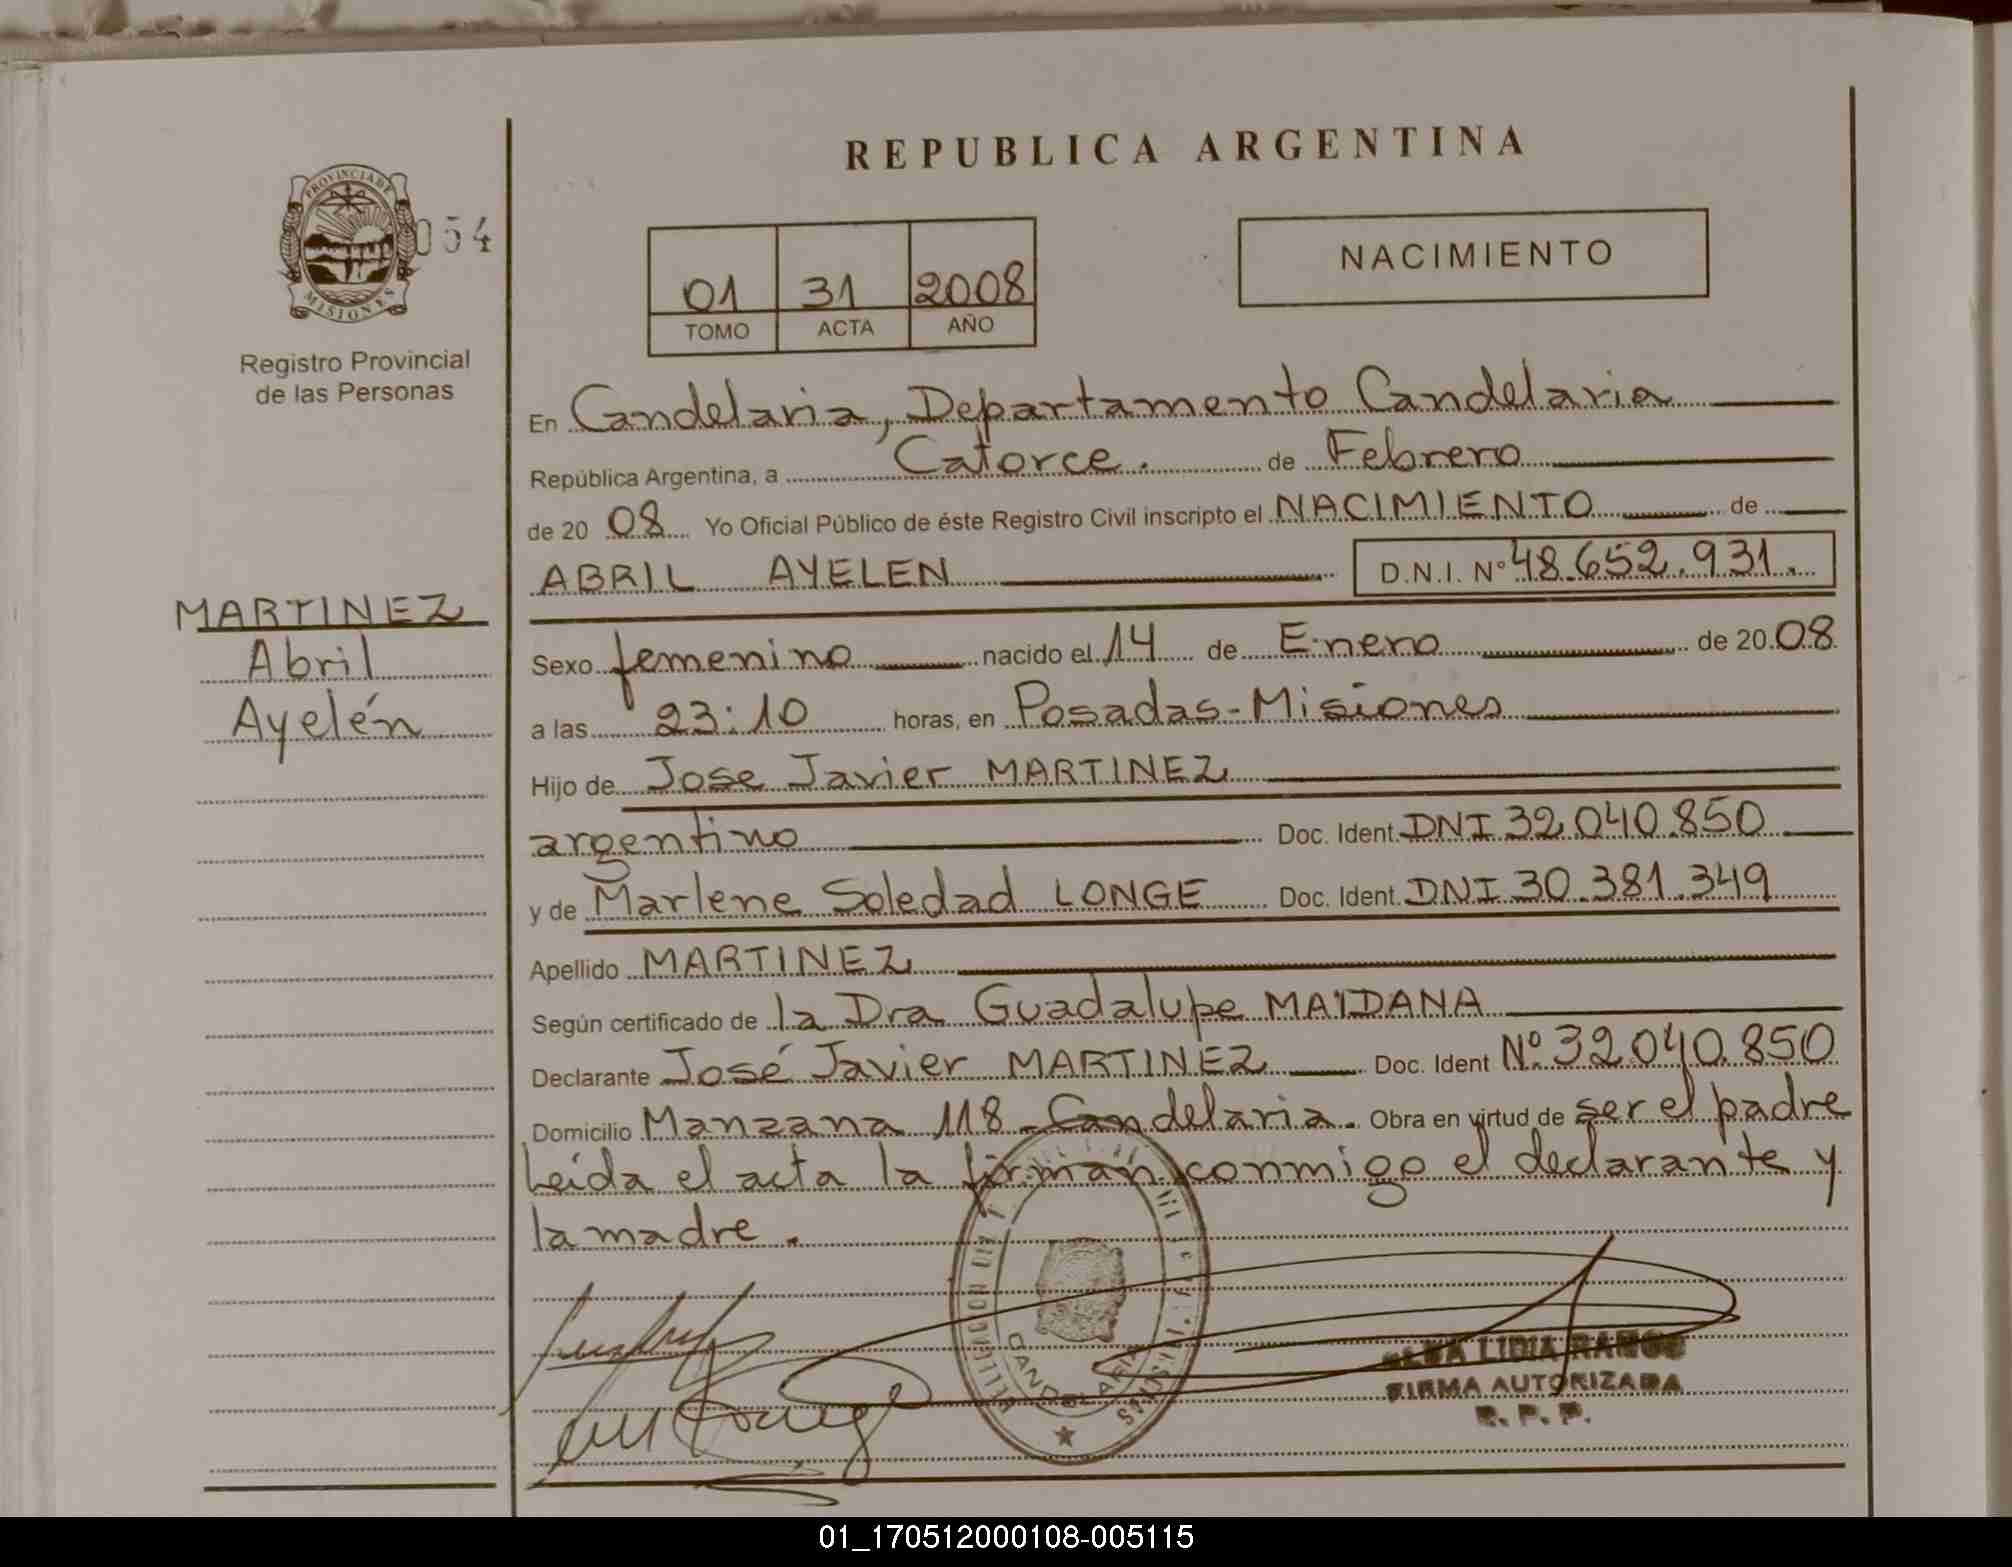 REPUBLICA ARGENTINA
PROVINCIA DE
MISIONES
054
Registro Provincial
de las Personas
01 31 2008
TOMO ACTA AÑO
NACIMIENTO
En Candelaria, Departamento Candelaria
República Argentina, a Catorce. de Febrero
de 20 08 Yo Oficial Público de éste Registro Civil inscripto el NACIMIENTO de
ABRIL AYELEN D.N.I. Nº 48.652.931.
MARTINEZ
Abril
Ayelén
Sexo femenino nacido el 14 de Enero de 20 08
a las 23:10 horas, en Posadas-Misiones
Hijo de Jose Javier MARTINEZ
argentino Doc. Ident. DNI 32.040.850
y de Marlene Soledad LONGE Doc. Ident. DNI 30.381.349
Apellido MARTINEZ
Según certificado de la Dra Guadalupe MAIDANA
Declarante José Javier MARTINEZ Doc. Ident Nº 32.040.850
Domicilio Manzana 118 - Candelaria. Obra en virtud de ser el padre
Leída el acta la firman conmigo el declarante y
la madre.
CANDELARIA
LIDIA RAMOS
FIRMA AUTORIZADA
R. P. P.
01_170512000108-005115